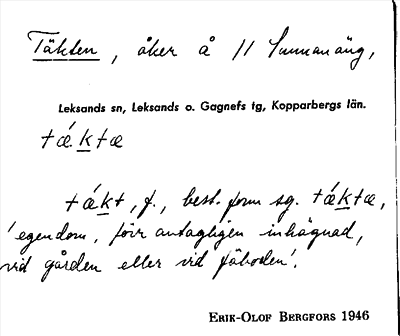 Täkten, åker å 11 Sunnanäng,
Leksands sn, Leksands o. Gagnefs tg, Kopparbergs län.
tǽktæ
tǽkt, f., best. form sg. tǽktæ,
'egendom, förr antagligen inhägnad,
vid gården eller vid fäboden'.
ERIK-OLOF BERGFORS 1946